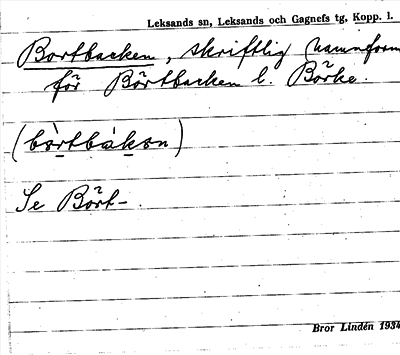 Leksands sn, Leksands och Gagnefs tg, Kopp. l.
Bortbacken, skriftlig namnform
för Börtbacken l. Börke.
(börtbàkən)
Se Bört-.
Bror Lindén 1934